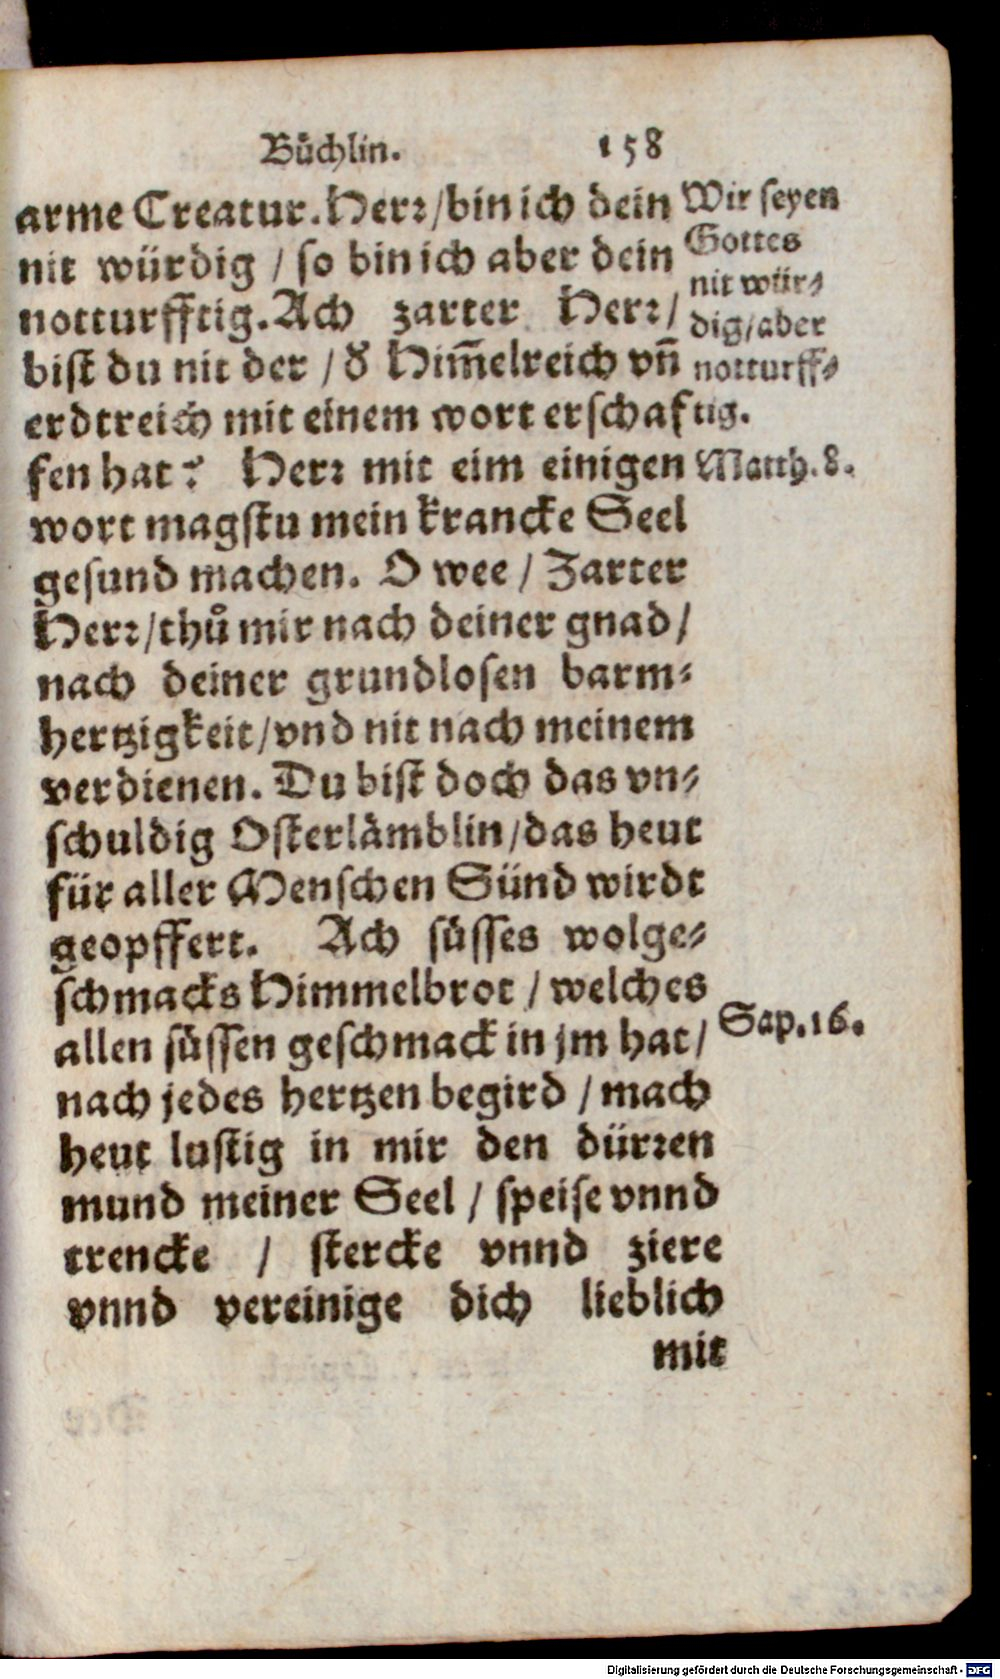 Bůchlin. 158
arme Creatur. Herꝛ / bin ich dein
nit würdig / so bin ich aber dein
notturfftig. Ach zarter Herꝛ /
bist du nit der / d' Him̃elreich vñ
erdtreich mit einem wort erschaf
fen hat? Herꝛ mit eim einigen
wort magstu mein krancke Seel
gesund machen. O wee / Zarter
Herꝛ / thů mir nach deiner gnad /
nach deiner grundlosen barm⸗
hertzigkeit / vnd nit nach meinem
verdienen. Du bist doch das vn⸗
schuldig Osterlämblin / das heut
für aller Menschen Sünd wirdt
geopffert. Ach süsses wolge⸗
schmacks Himmelbrot / welches
allen süssen geschmack in jm hat /
nach jedes hertzen begird / mach
heut lustig in mir den dürꝛen
mund meiner Seel / speise vnnd
trencke / stercke vnnd ziere
vnnd vereinige dich lieblich
mit
Wir seyen
Gottes
nit wür⸗
dig / aber
notturff⸗
tig.
Matth. 8.
Sap. 16.
Digitalisierung gefördert durch die Deutsche Forschungsgemeinschaft - DFG